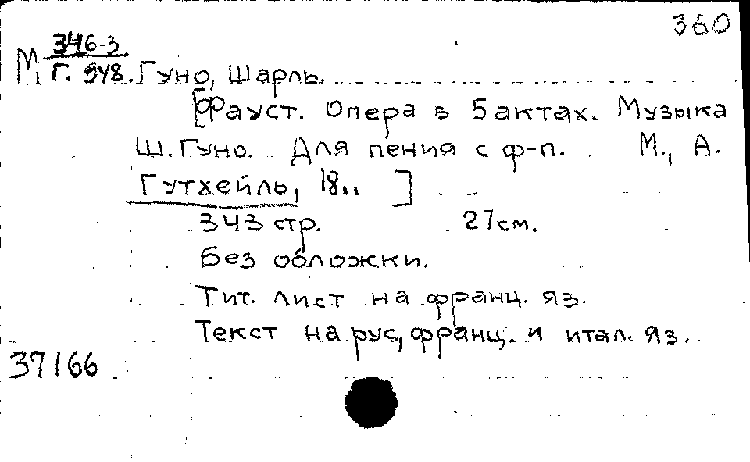 360
М 346-3
Г. 948. Гуно, Шарль.
[Фауст. Опера в 5 актах. Музыка
Ш. Гуно. Для пения с ф-п. М., А.
Гутхейль, 18.. ]
343 стр. 27 см.
Без обложки.
Тит. лист на франц. яз.
Текст на рус, франц. и итал. яз.
37166